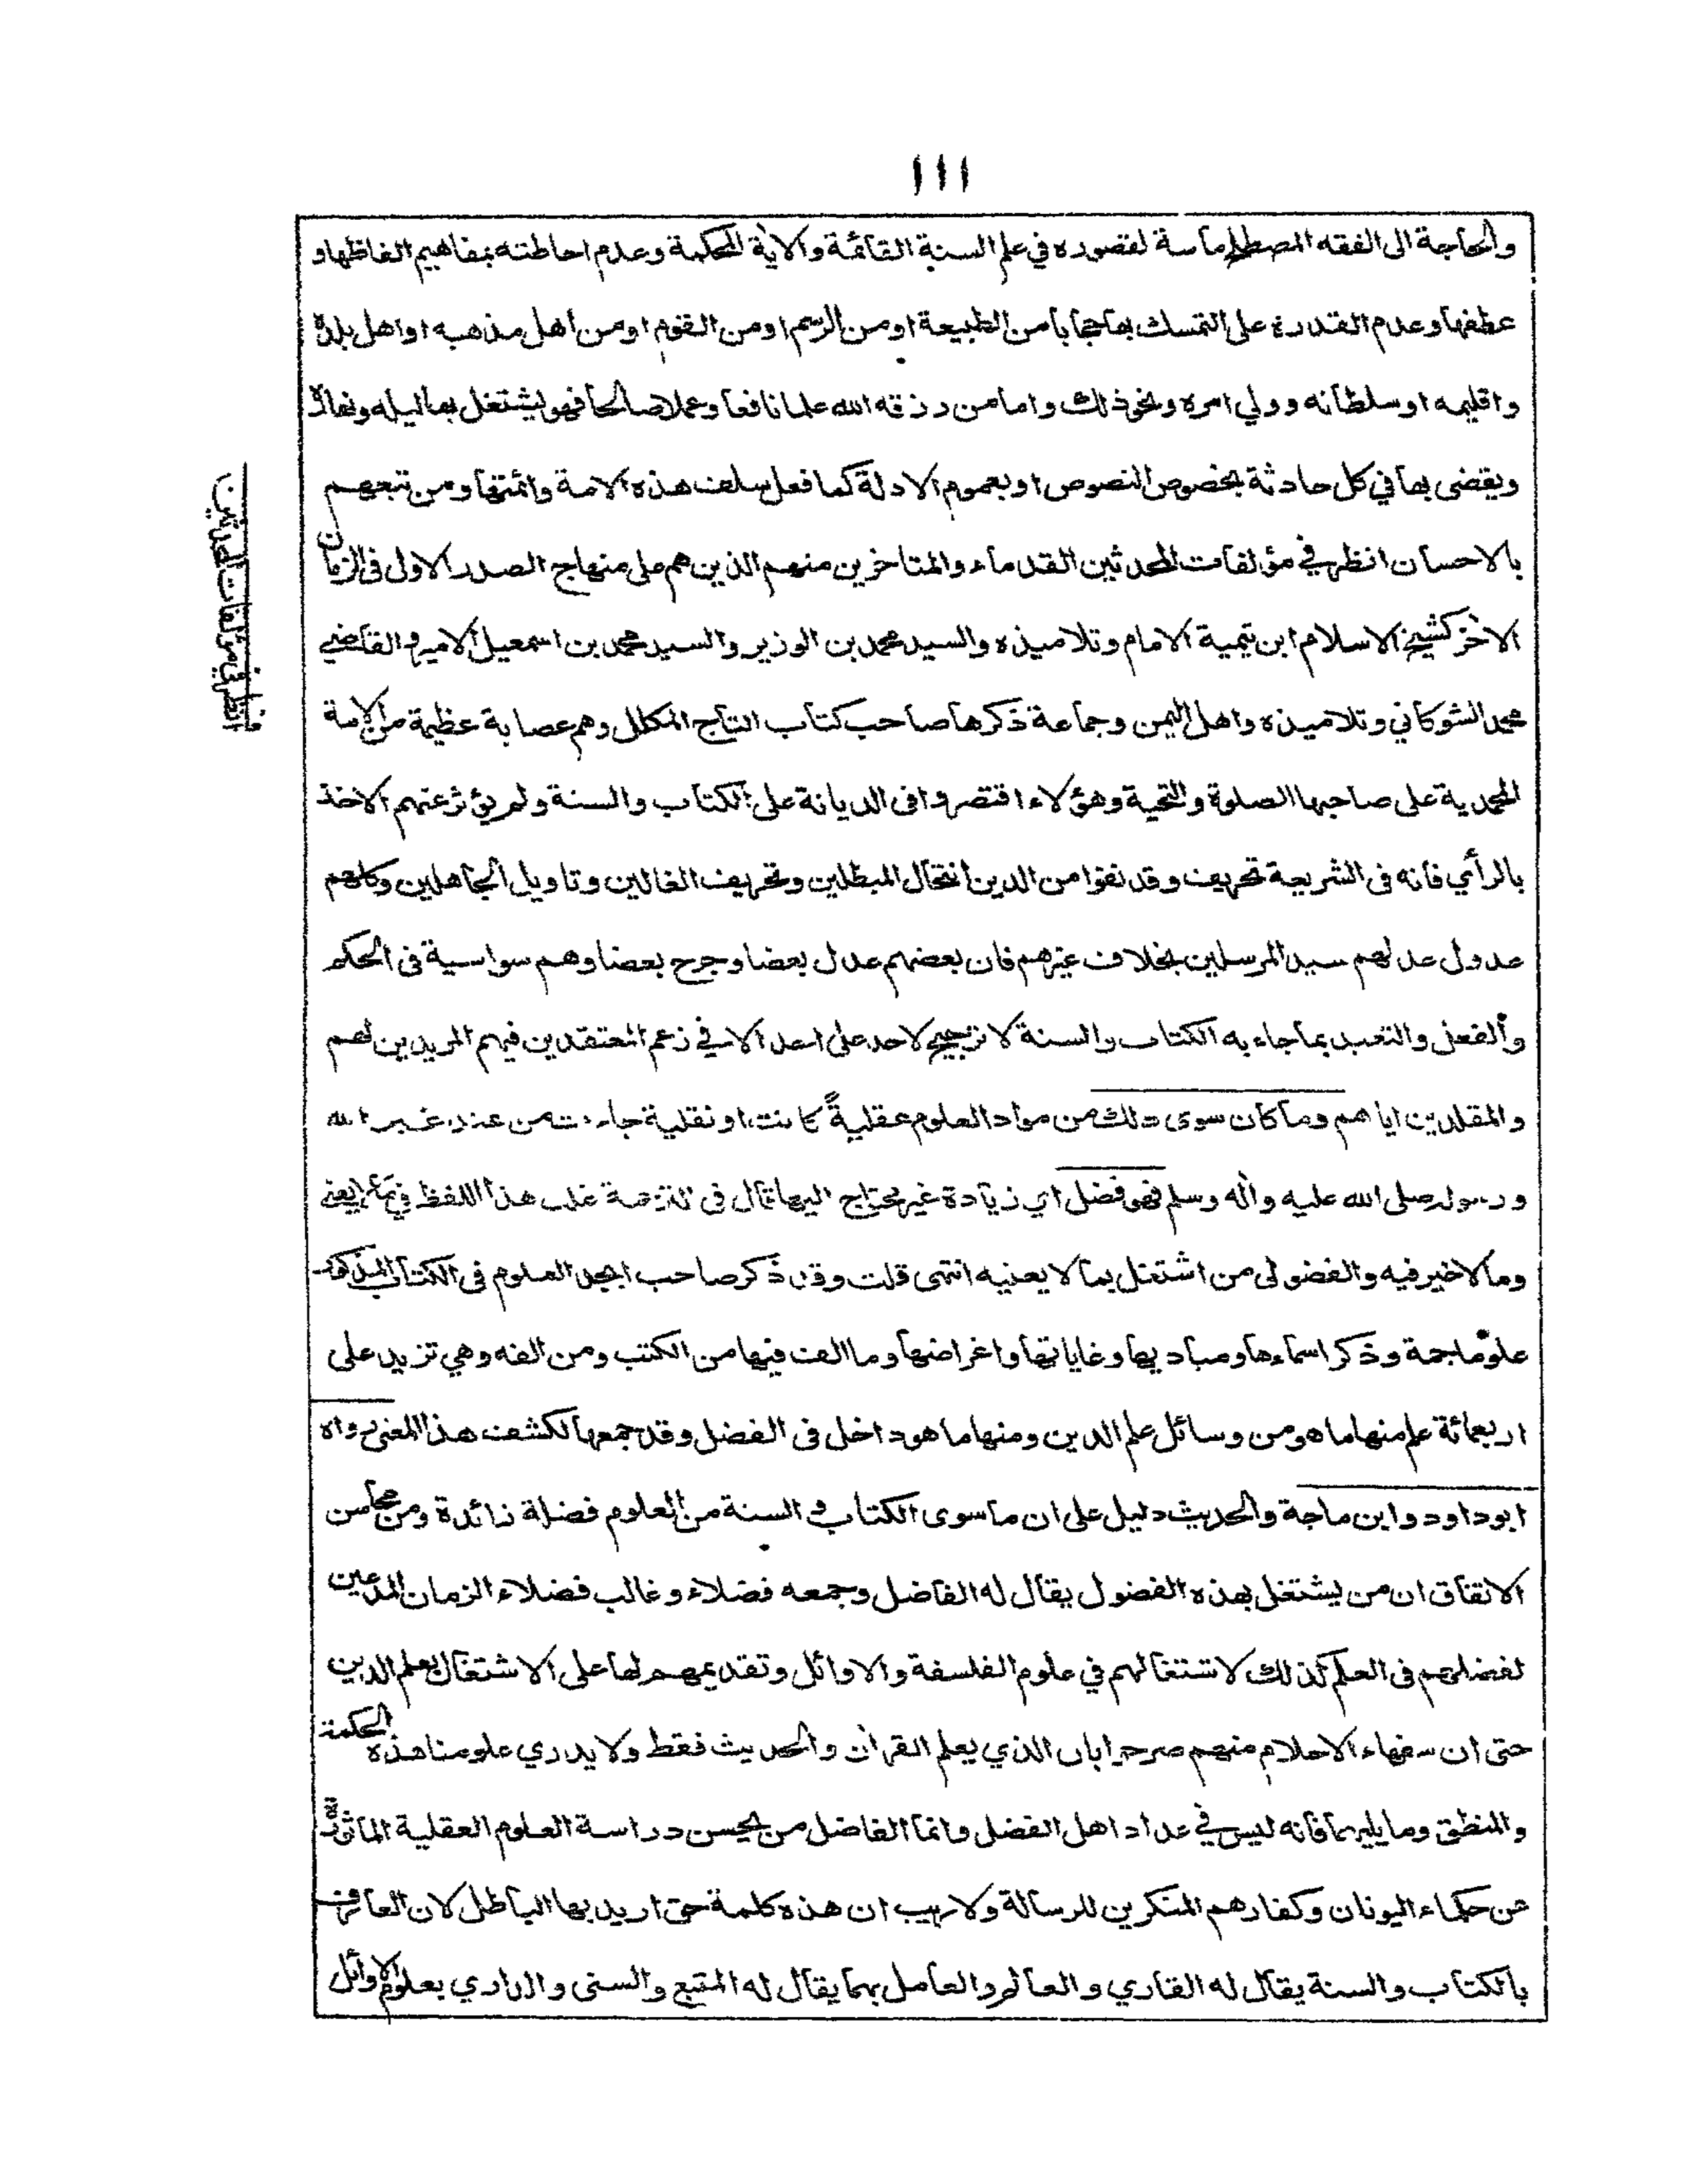 ١١١
والحاجة الى الفقه المصطلح ماسة لقصوره في علم السنة القائمة والآية المحكمة وعدم احاطته بمفاهيم الفاظها و
عطفها وعدم القدرة على التمسك بها حجابا من الطبيعة او من الرسم او من القوم او من اهل مذهبه او اهل بلدة
واقليمه او سلطانه وولي امره ونحو ذلك واما من رزقه الله علما نافعا وعملا صالحا فهو يشتغل بها ليله ونهاره
ويقضى بها في كل حادثة بخصوص النصوص او بعموم الادلة كما فعل سلف هذه الامة وائمتها ومن تبعهم
بالاحسان انظر في مؤلفات المحدثين القدماء والمتاخرين منهم الذين هم على منهاج الصدر الاولى فى الزمان
الآخر كشيخ الاسلام ابن تيمية الامام وتلاميذه والسيد محمد بن الوزير والسيد محمد بن اسمعيل الامير والقاضي
محمد الشوكاني وتلاميذه واهل اليمن وجماعة ذكرها صاحب كتاب التاج المكلل وهم عصابة عظيمة من الامة
المحمدية على صاحبها الصلوة والتحية وهؤلاء اقتصروا فى الديانة على الكتاب والسنة ولم يؤثر عنهم الاخذ
بالرأي فانه فى الشريعة تحريف وقد نفوا من الدين انتحال المبطلين وتحريف الغالين وتاويل الجاهلين وكلهم
عدول عدلهم سيد المرسلين بخلاف غيرهم فان بعضهم عدل بعضا وجرح بعضا وهم سواسية فى الحكم
والفعل والتعبد بما جاء به الكتاب والسنة لا ترجيح لاحد على احد الا في زعم المعتقدين فيهم المريدين لهم
والمقلدين اياهم وما كان سوى ذلك من مواد العلوم عقليةً كانت او نقلية جاءت من عند غير الله
ورسوله صلى الله عليه وآله وسلم فهو فضل اي زيادة غير محتاج اليها قال فى الترجمة غلب هذا اللفظ في يعنى
وما لا خير فيه والفضولى من اشتغل بما لا يعنيه انتهى قلت وقد ذكر صاحب ابجد العلوم فى الكتاب المذكور
علوما جمة وذكر اسماءها ومباديها وغاياتها واغراضها وما الف فيها من الكتب ومن الفه وهي تزيد على
اربعمائة علم منها ما هو من وسائل علم الدين ومنها ما هو داخل فى الفضل وقد جمعها لكشف هذا المعنى رواه
ابو داود وابن ماجة والحديث دليل على ان ما سوى الكتاب والسنة من العلوم فضلة زائدة ومن محاسن
الاتفاق ان من يشتغل بهذه الفضول يقال له الفاضل وجمعه فضلاء وغالب فضلاء الزمان المدعين
لفضلهم فى العلم كذلك لاشتغالهم في علوم الفلسفة والاوائل وتقديمهم لها على الاشتغال بعلم الدين
حتى ان سفهاء الاحلام منهم صرحوا بان الذي يعلم القرآن والحديث فقط ولا يدري علومنا هذه الحكمة
والمنطق وما يليهما فانه ليس في عداد اهل الفضل وانما الفاضل من يحسن دراسة العلوم العقلية الماثورة
عن حكماء اليونان وكفارهم المنكرين للرسالة ولا ريب ان هذه كلمة حق اريد بها الباطل لان العارف
بالكتاب والسنة يقال له القاري والعالم والعامل بهما يقال له المتبع والسنى والداري بعلوم الاوائل
انظر في مؤلفات المحدثين